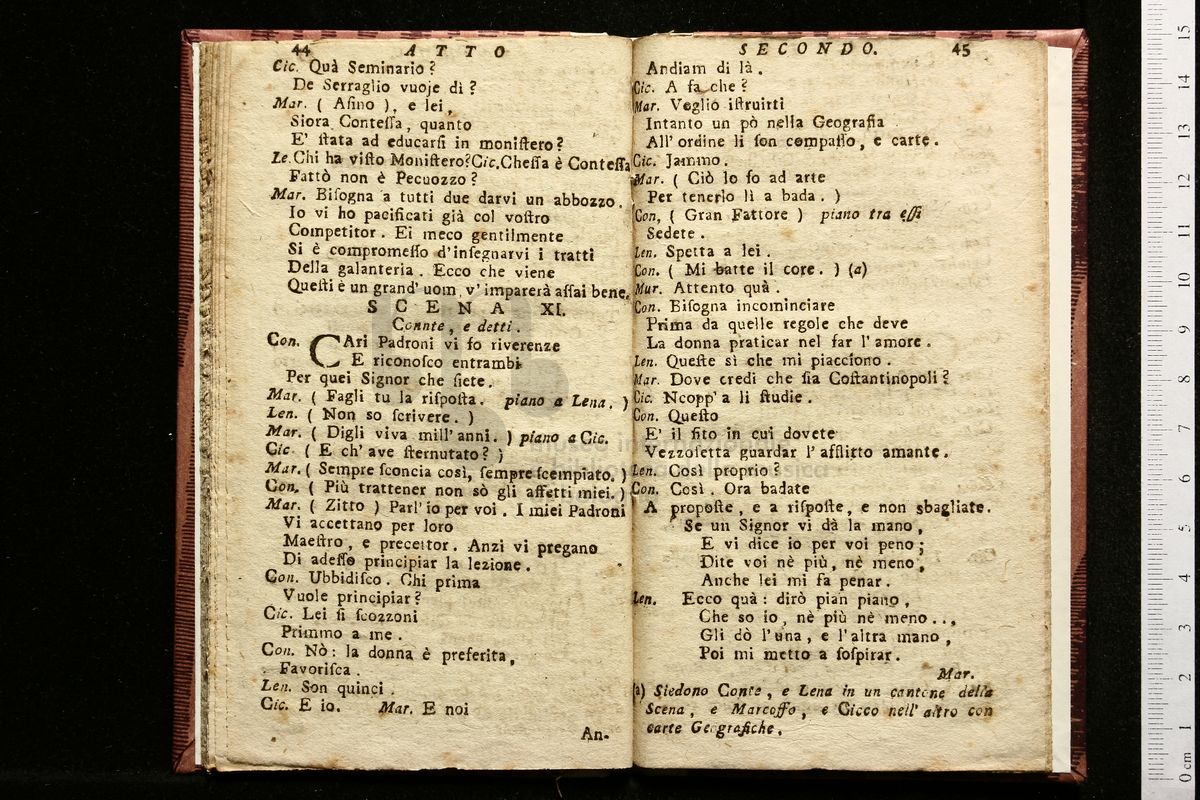 44 ATTO
Cic. Quà Seminario?
De Serraglio vuoje dì?
Mar. ( Asino ), e lei,
Siora Contessa, quanto
E' stata ad educarsi in monistero?
Le. Chi ha visto Monistero? Cic. Chessa è Contessa
Fattò non è Pecuozzo?
Mar. Bisogna a tutti due darvi un abbozzo.
Io vi ho pacificati già col vostro
Competitor. Ei meco gentilmente
Si è compromesso d'insegnarvi i tratti
Della galanteria. Ecco che viene
Questi è un grand' uom, v' imparerà assai bene.
SCENA XI.
Connte, e detti.
Con. CAri Padroni vi fo riverenze
E riconosco entrambi
Per quei Signor che siete.
Mar. ( Fagli tu la risposta. piano a Lena. )
Len. ( Non so scrivere. )
Mar. ( Digli viva mill' anni. ) piano a Cic.
Cic. ( E ch' ave sternutato? )
Mar. ( Sempre sconcia così, sempre scempiato. )
Con. ( Più trattener non sò gli affetti miei. )
Mar. ( Zitto ) Parl' io per voi. I miei Padroni
Vi accettano per loro
Maestro, e precettor. Anzi vi pregano
Di adesso principiar la lezione.
Con. Ubbidisco. Chi prima
Vuole principiar?
Cic. Lei si scozzoni
Primmo a me.
Con. Nò: la donna è preferita,
Favorisca.
Len. Son quinci.
Cic. E io. Mar. E noi
An-
SECONDO. 45
Andiam di là.
Cic. A fa che?
Mar. Voglio istruirti
Intanto un pò nella Geografia
All' ordine li son compasso, e carte.
Cic. Jammo.
Mar. ( Ciò lo fo ad arte
Per tenerlo lì a bada. )
Con, ( Gran Fattore ) piano tra essi
Sedete.
Len. Spetta a lei.
Con. ( Mi batte il core. ) (a)
Mur. Attento quà.
Con. Bisogna incominciare
Prima da quelle regole che deve
La donna praticar nel far l'amore.
Len. Queste sì che mi piacciono.
Mar. Dove credi che sia Costantinopoli?
Cic. Ncopp' a li studie.
Con. Questo
E' il sito in cui dovete
Vezzosetta guardar l'afflitto amante.
Len. Così proprio?
Con. Così. Ora badate
A proposte, e a risposte, e non sbagliate.
Se un Signor vi dà la mano,
E vi dice io per voi peno;
Dite voi nè più, nè meno,
Anche lei mi fa penar.
Len. Ecco quà: dirò pian piano,
Che so io, nè più nè meno...
Gli dò l'una, e l'altra mano,
Poi mi metto a sospirar.
Mar.
(a) Siedono Conte, e Lena in un cantone della
Scena, e Marcoffo, e Cicco nell' altro con
carte Geografiche.
0 cm 1 2 3 4 5 6 7 8 9 10 11 12 13 14 15